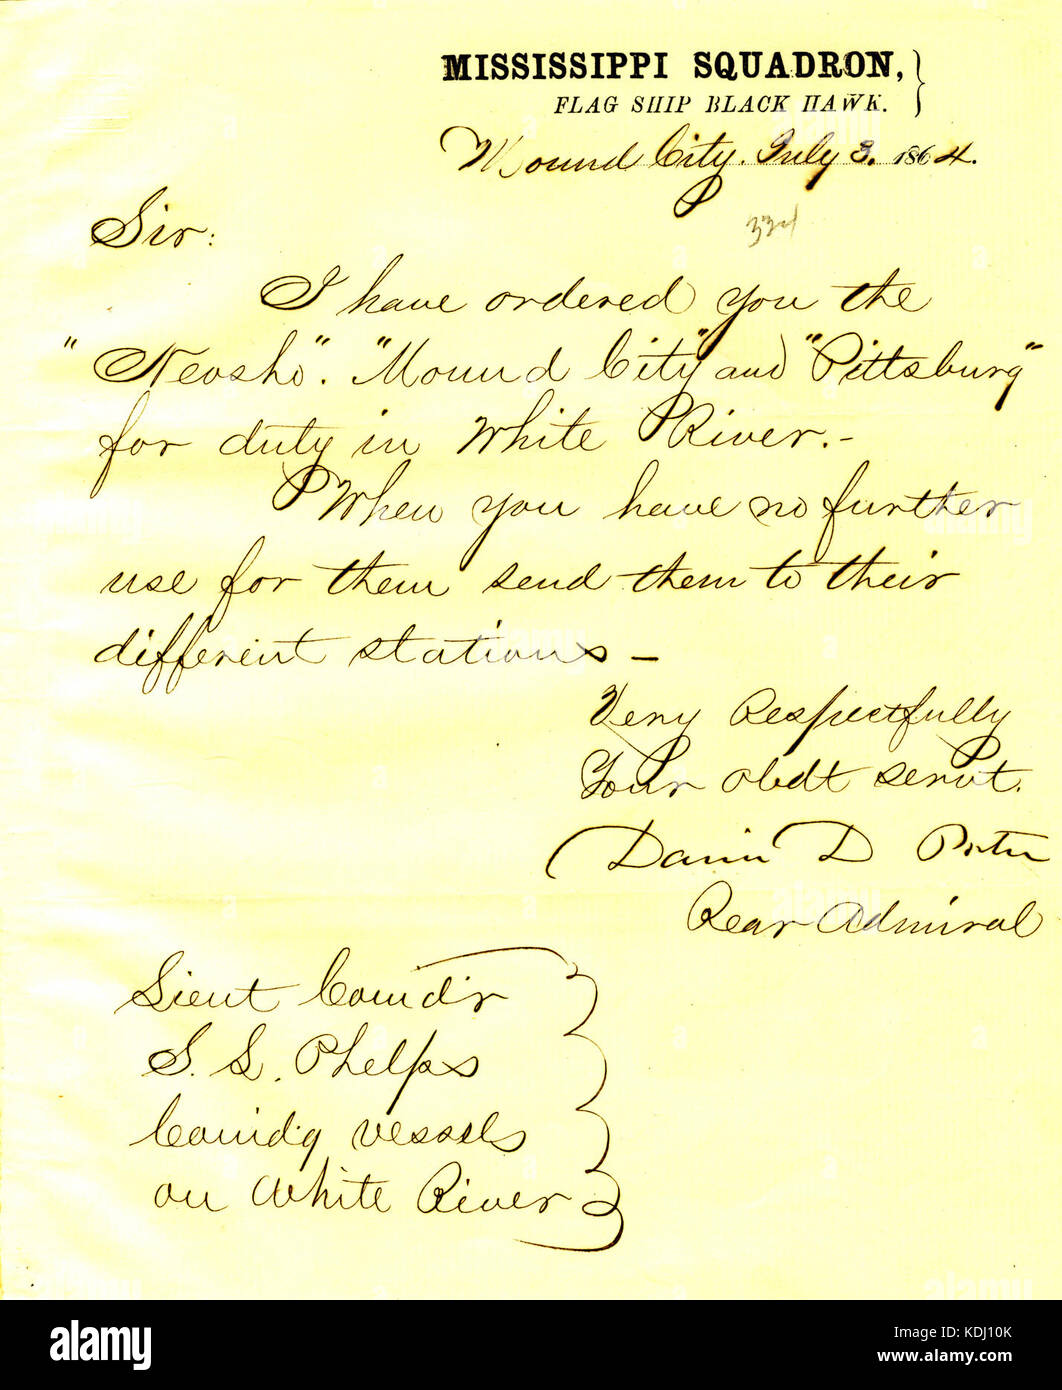 MISSISSIPPI SQUADRON,
FLAG SHIP BLACK HAWK.
Mound City. July 3. 1864.
Sir:
I have ordered you the
"Neosho". "Mound City" and "Pittsburg"
for duty in White River.-
When you have no further
use for them send them to their
different stations -
Very Respectfully
Your obdt servt.
David D Porter
Rear Admiral
Lieut Comd'r
S. L. Phelps
Comdg vessels
on White River
alamy
Image ID: KDJ10K
www.alamy.com